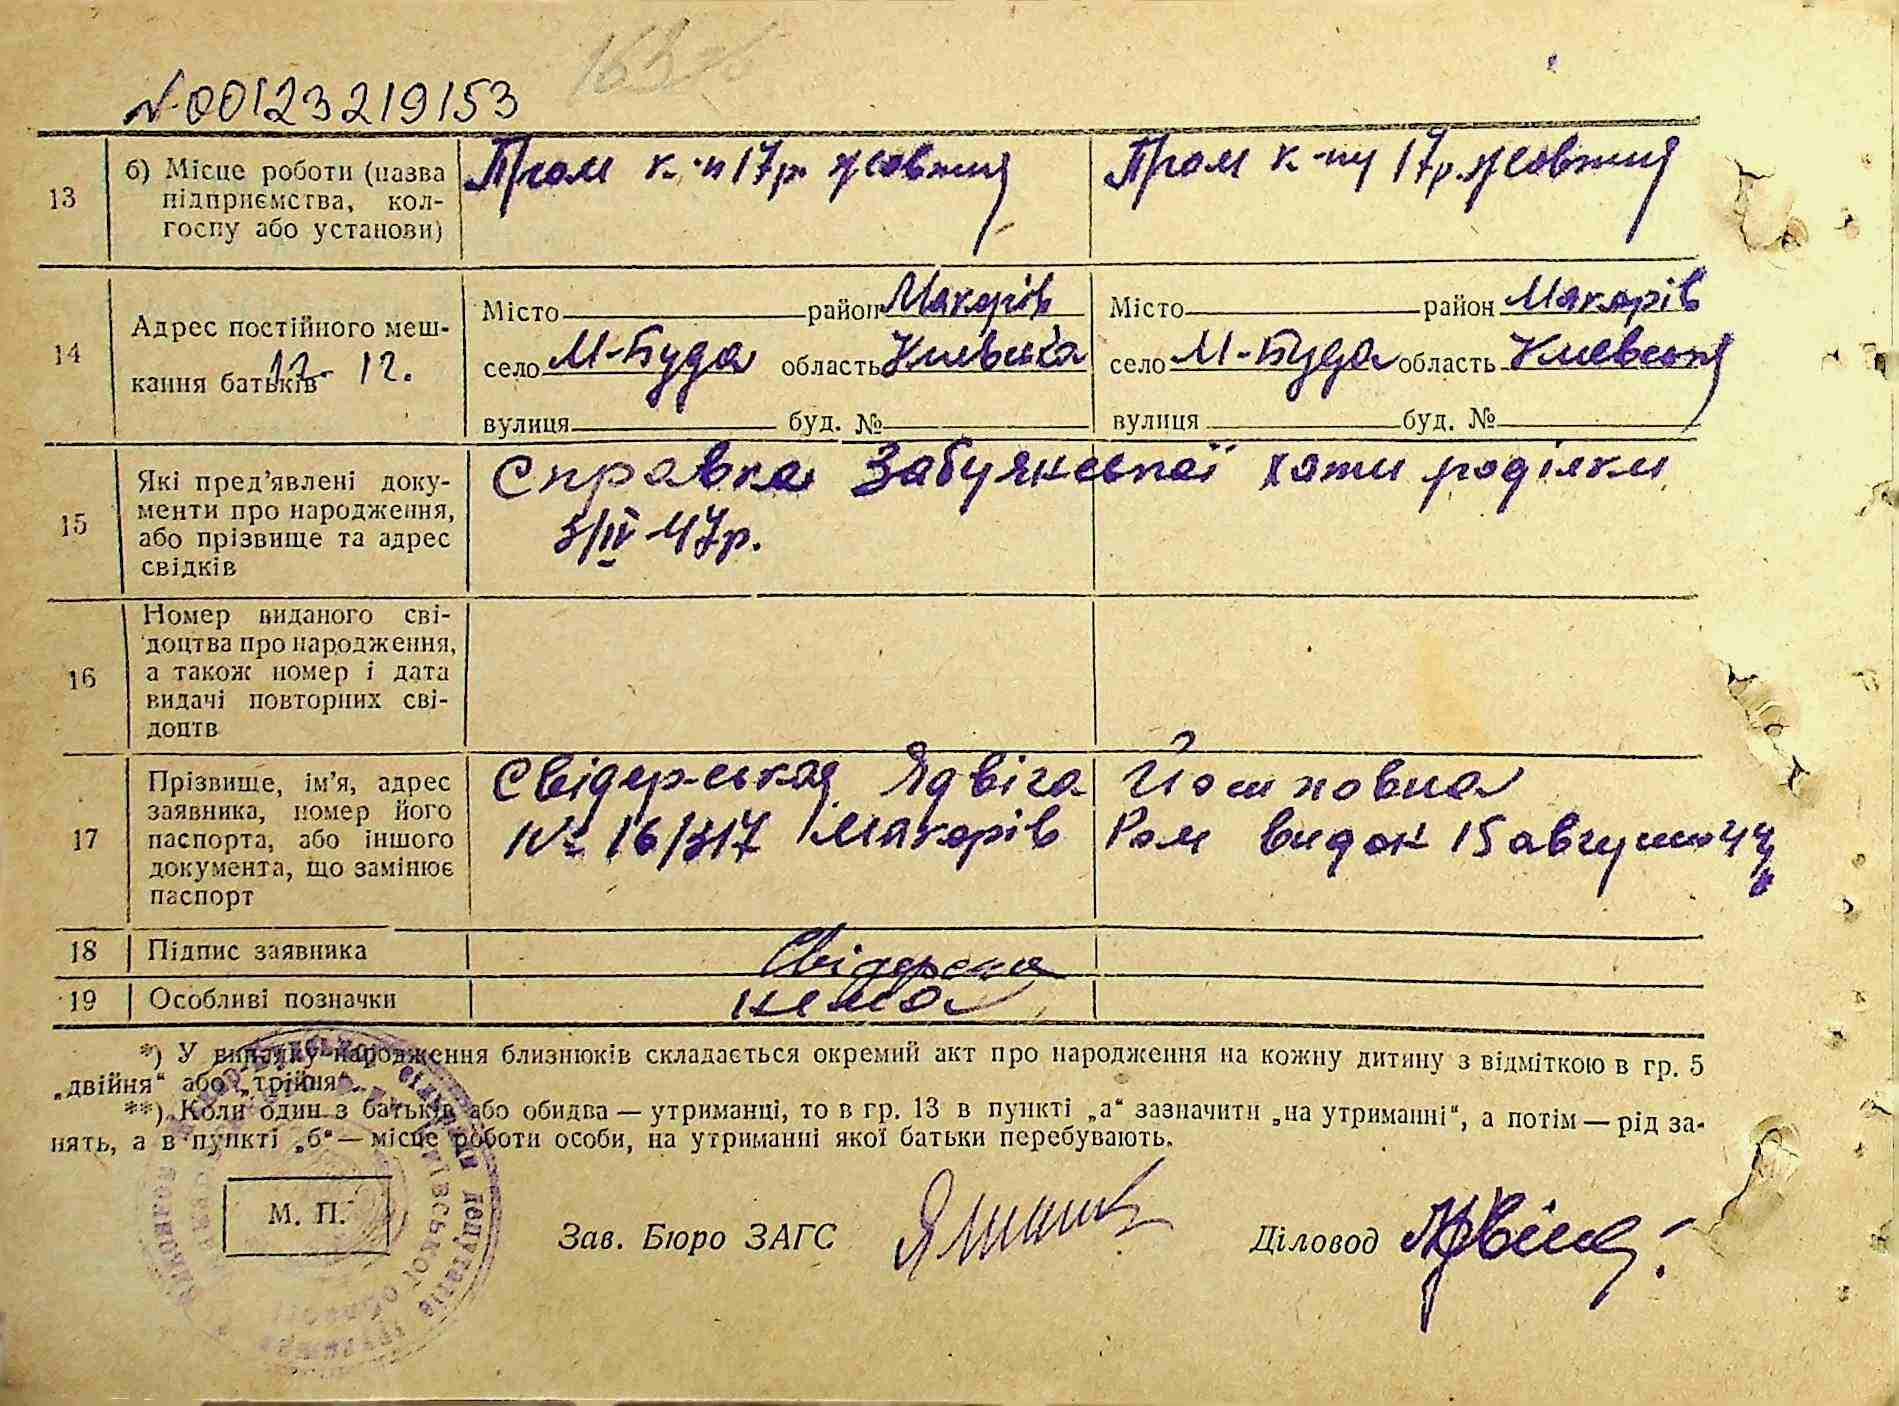 163
№00123219153
13 б) Місце роботи (назва підприємства, колгоспу або установи) Пром к-п 17р. жовтня Пром к-пу 17р. жовтня
14 Адрес постійного мешкання батьків 12. Місто район Макарів Місто район Макарів
село М-Буда область Киевська село М-Буда область Киевська
вулиця буд. № вулиця буд. №
15 Які пред'явлені документи про народження, або прізвище та адрес свідків Справка Забуянської хати роділки
3/IV-47р.
16 Номер виданого свідоцтва про народження, а також номер і дата видачі повторних свідоцтв
17 Прізвище, ім'я, адрес заявника, номер його паспорта, або іншого документа, що замінює паспорт Свідерськая Ядвіга
№ 16/317 Макарів видан 15 августа 44
18 Підпис заявника Свідерска
19 Особливі позначки нема
*) У випадку народження близнюків складається окремий акт про народження на кожну дитину з відміткою в гр. 5
„двійня“ або „трійня“.
**) Коли один з батьків або обидва — утриманці, то в гр. 13 в пункті „а“ зазначити „на утриманні“, а потім — рід за-
нять, а в пункті „б“ — місце роботи особи, на утриманні якої батьки перебувають.
М. П.
Зав. Бюро ЗАГС
Діловод